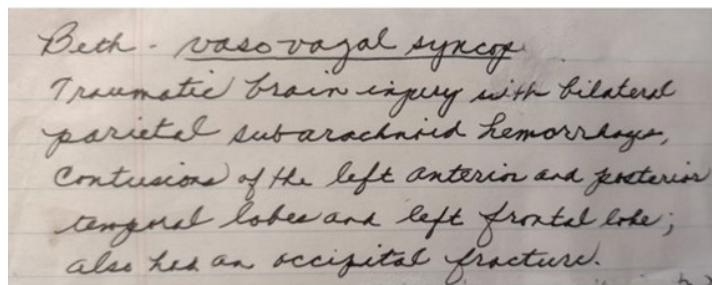 Beth - vasovagal syncop
Traumatic brain injury with bilateral
parietal subarachnoid hemorrhages,
contusions of the left anterior and posterior
temporal lobes and left frontal lobe;
also has an occipital fracture.